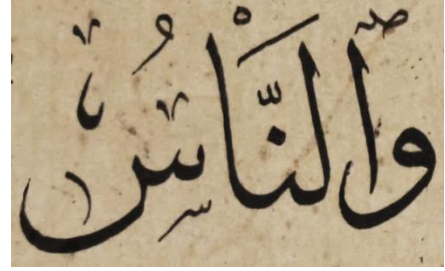 وَٱلنَّاسُ